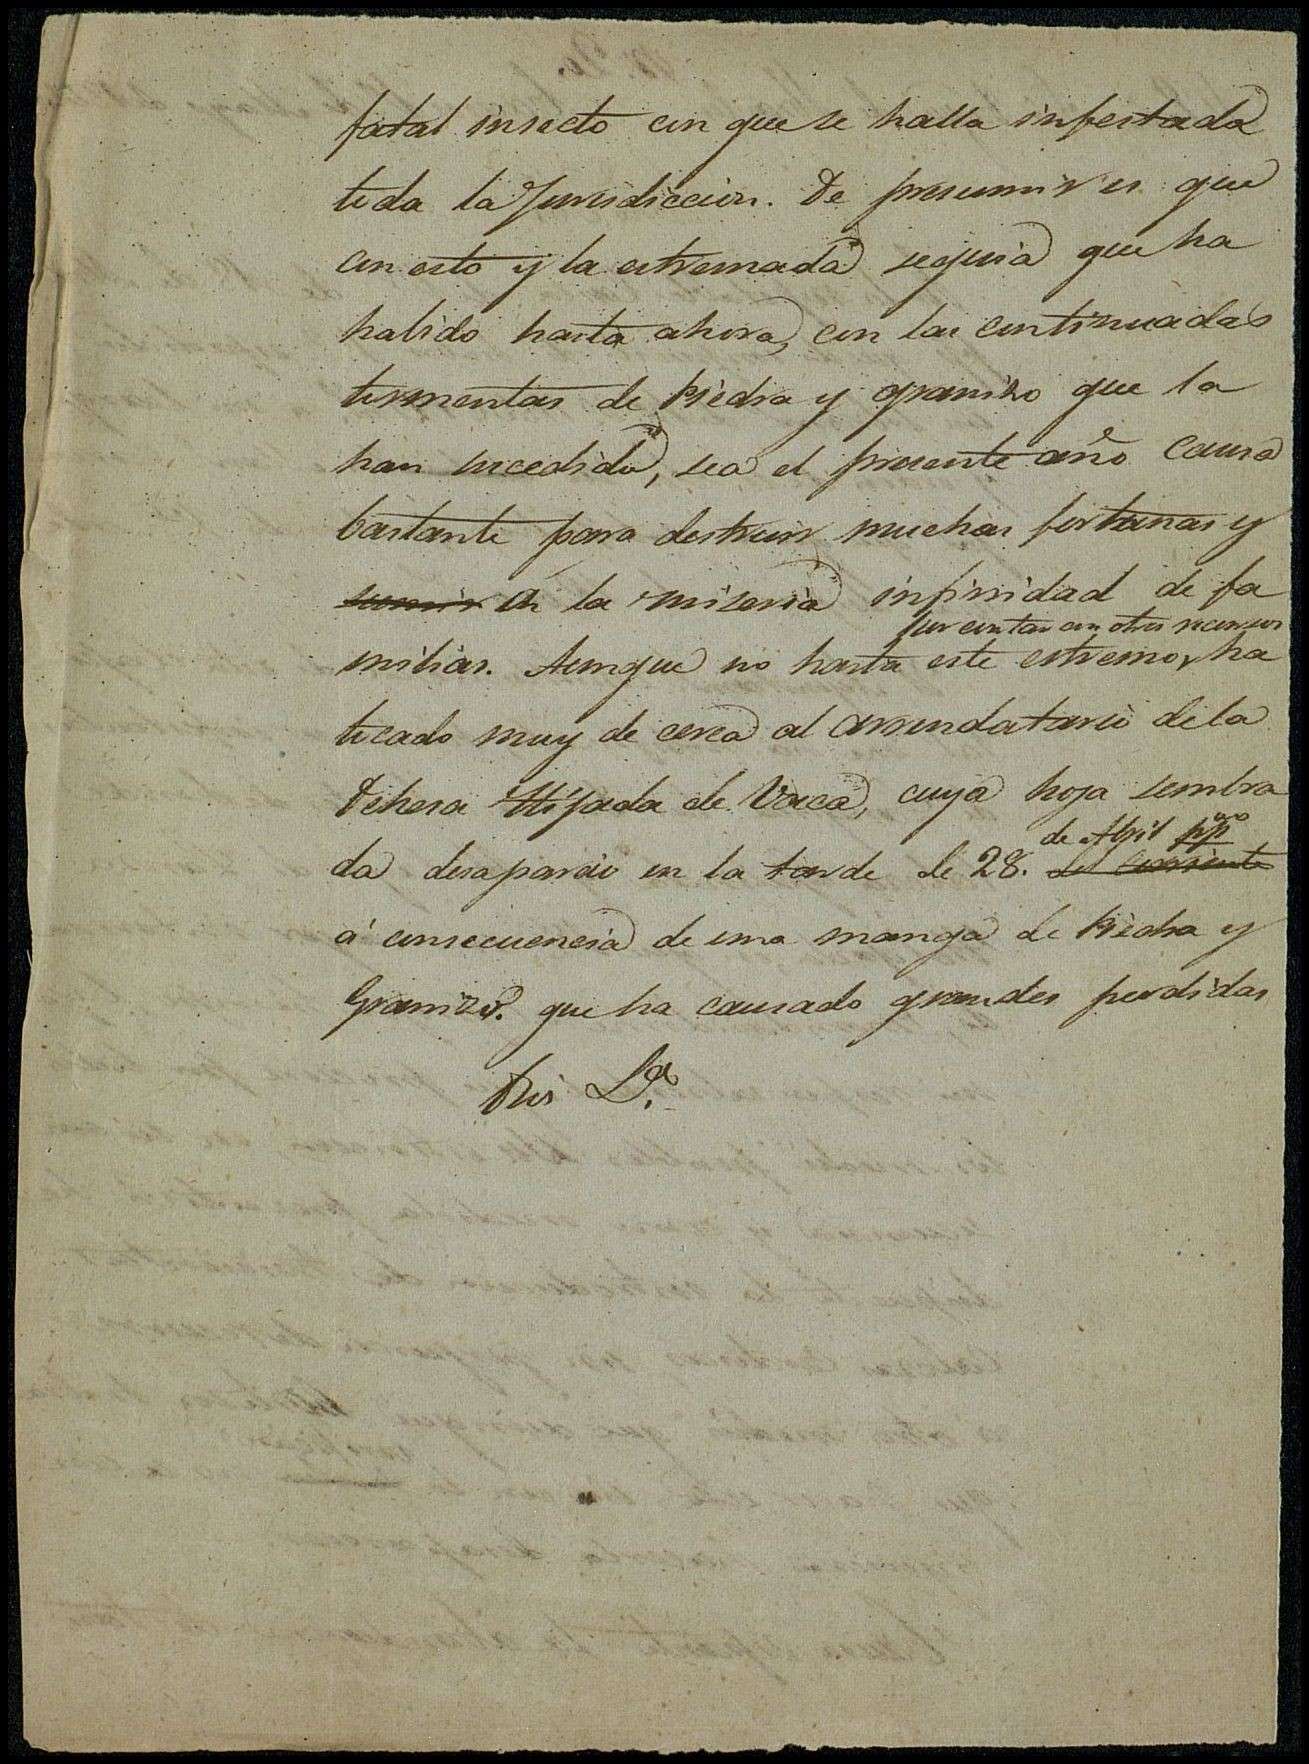 fatal insecto con que se halla infestada
toda la Jurisdiccion. De presumir es que
con esto y la estremada sequia que ha
habido hasta ahora, con las continuadas
tormentas de Piedra y granizo que la
han sucedido, sea el presente año causa
bastante para destruir muchas fortunas y
sumir en la miseria infinidad de fa
por contar con otros recursos
milias. Aunque no hasta este estremo, ha
tocado muy de cerca al arrendatario de la
Dehesa Hijada de Vaca, cuya hoja sembra
de Abril pp.do
da desaparcio en la tarde de 28. del corriente
á consecuencia de una manga de Piedra y
Granizo. que ha causado grandes perdidas
Dios &.a